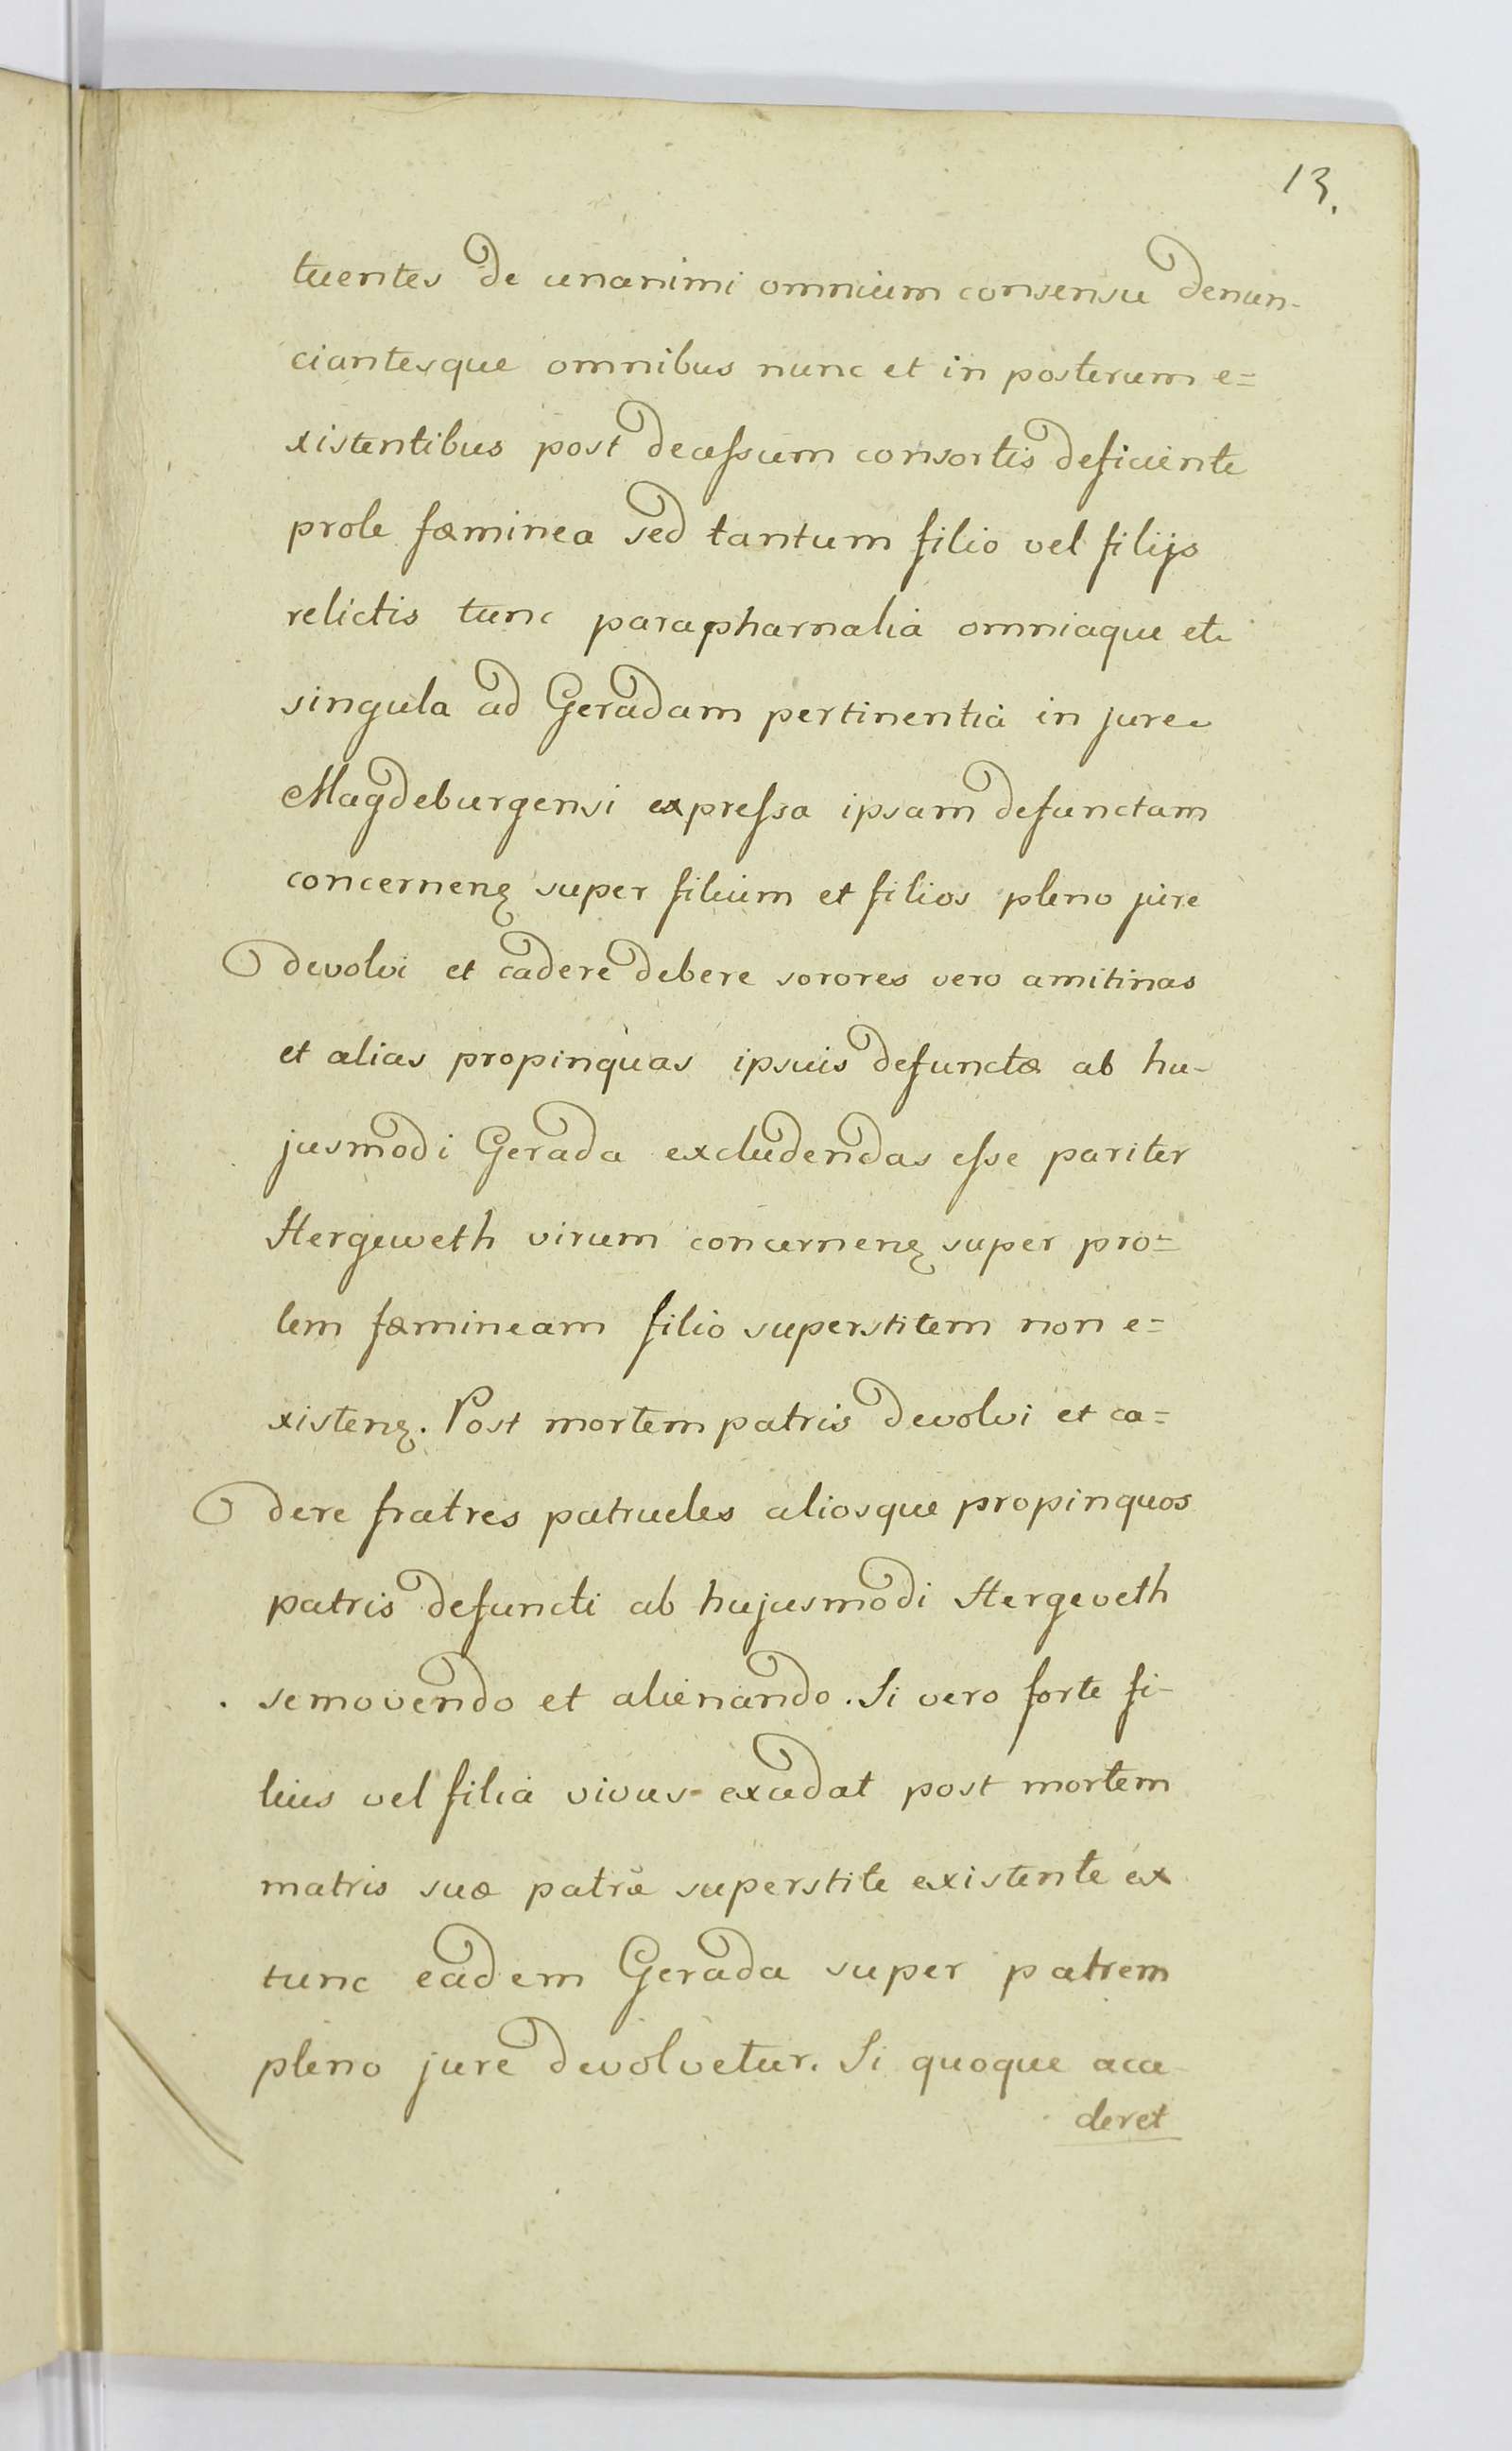 13.
tuentes de unanimi omnium consensu denun-
ciantesque omnibus nunc et in posterum e=
xistentibus post decessum consortis deficiente
prole fæminea sed tantum filio vel filijs
relictis tunc parapharnalia omniaque et
singula ad Geradam pertinentia in jure
Magdeburgensi expressa ipsam defunctam
concernenȩ super filium et filios pleno jure
devolvi et cadere debere sorores vero amitinas
et alias propinquas ipsius defunctæ ab hu-
jusmodi Gerada excludendas esse pariter
Hergeweth virum concernenȩ super pro=
lem fæmineam filio superstitem non e=
xistenȩ. Post mortem patris devolvi et ca=
dere fratres patrueles aliosque propinquos
patris defuncti ab hujusmodi Hergeveth
semovendo et alienando. Si vero forte fi-
lius vel filia vivus excedat post mortem
matris suæ patre superstite existente ex
tunc eadem Gerada super patrem
pleno jure devolvetur. Si quoque acce
deret